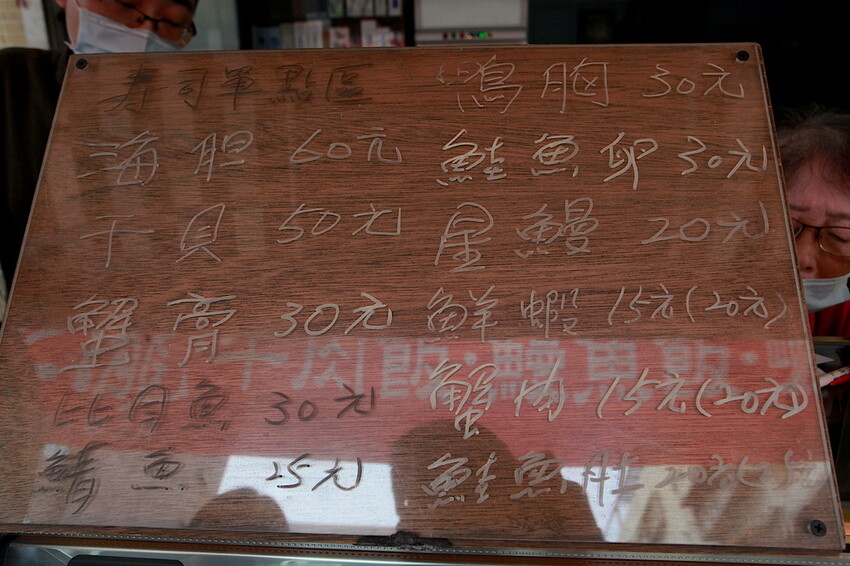 壽司單點區
海胆 60元
干貝 50元
蟹膏 30元
比目魚 30元
鯖魚 25元
鴨胸 30元
鮭魚卵 30元
星鰻 20元
鮮蝦 15元(20元)
蟹肉 15元(20元)
鮭魚肚 20元